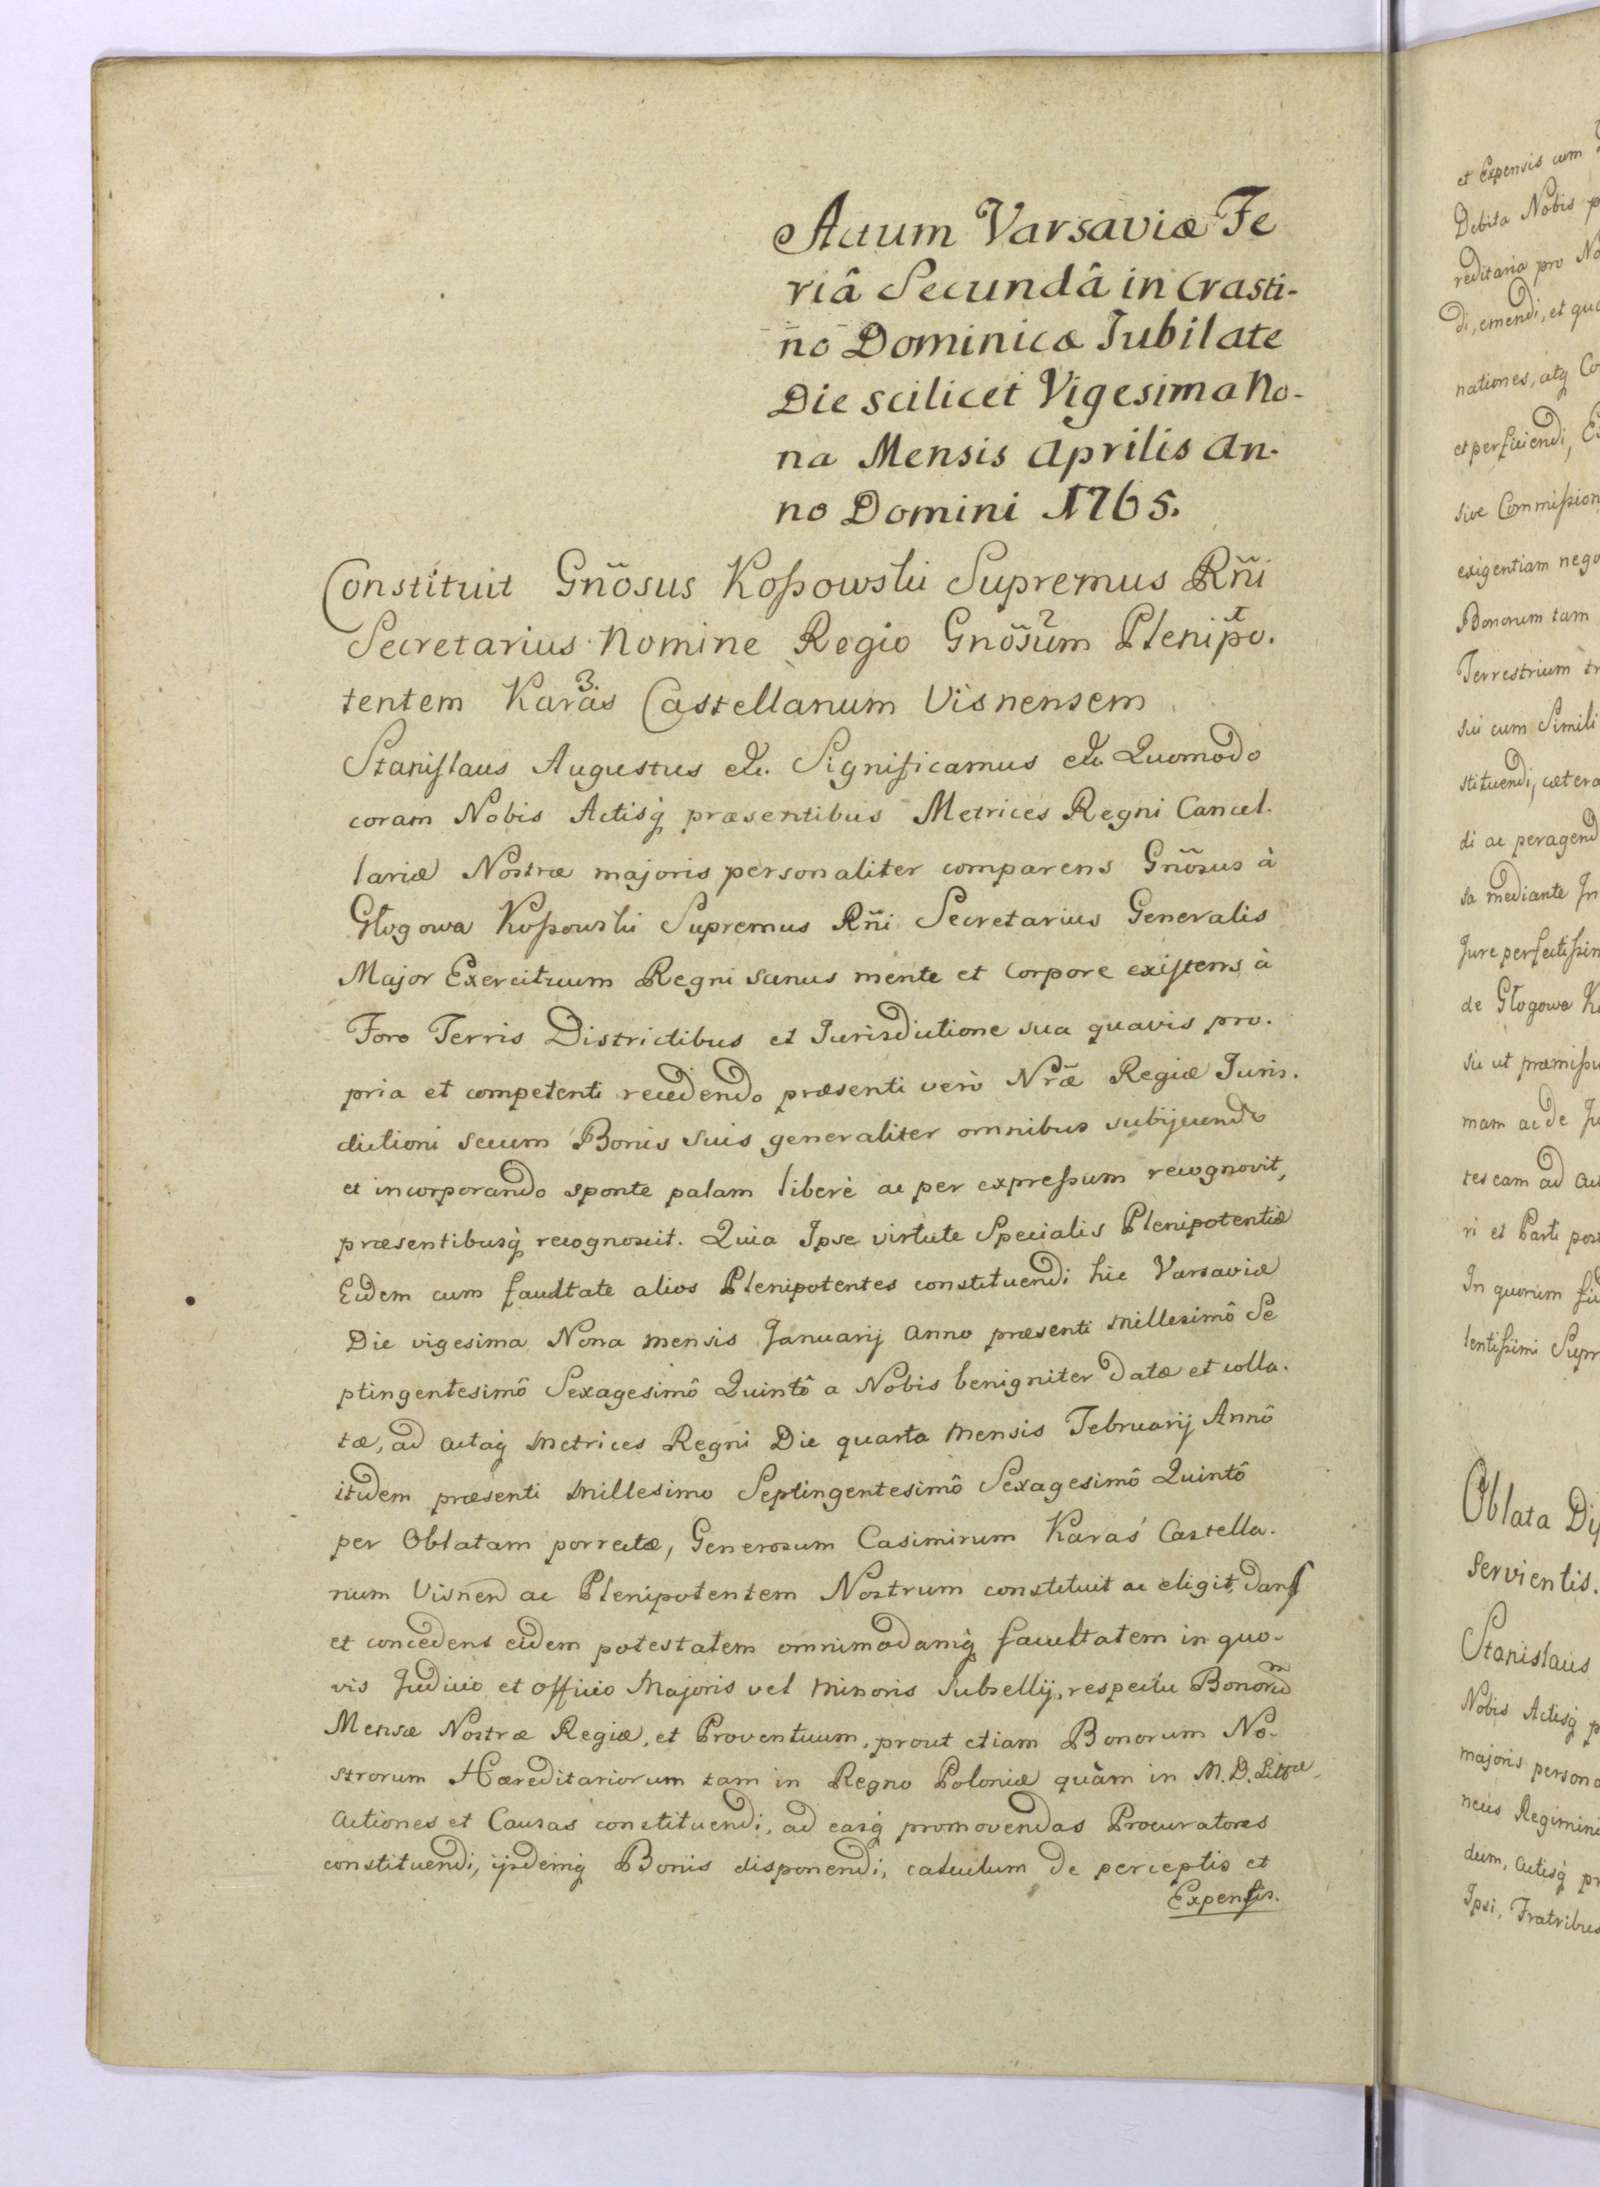 Actum Varsaviæ Fe
riâ Secundâ in Crasti-
no Dominicæ Jubilate
Die scilicet Vigesima No-
na Mensis Aprilis An-
no Domini 1765.
Constituit Gñosus Koßowski Supremus Rñi
Secretarius Nomine Regio Gnosum Plenipo.
tentem Karás Castellanum Visnensem
Stanislaus Augustus etc. Significamus etc. Quomodo
coram Nobis Actisq præsentibus Metrices Regni Cancel.
lariæ Nostræ majoris personaliter comparens Gñosus à
Głogowa Koßowski Supremus Rñi Secretarius Generalis
Major Exercituum Regni sanus mente et corpore existens à
Foro Terris Districtibus et Jurisdictione sua quavis pro.
pria et competenti recedendo præsenti verò Nræ Regiæ Juris.
dictioni secum Bonis suis generaliter omnibus subijciendo
et incorporando sponte palam liberè ac per expreßum recognovit,
præsentibusq recognoscit. Quia Ipse virtute Specialis Plenipotentiæ
Eidem cum facultate alios Plenipotentes constituendi hic Varsaviæ
Die vigesima Nona mensis Januarij anno præsenti Millesimô Se
ptingentesimô Sexagesimô Quintô a Nobis benigniter datæ et colla.
tæ, ad actaq Metrices Regni Die quarta Mensis Februarij Annô
itidem præsenti Millesimo Septingentesimô Sexagesimô Quintô
per Oblatam porrectæ, Generosum Casimirum Karaś Castella.
num Visnen ac Plenipotentem Nostrum constituit ac eligit, dans
et concedens eidem potestatem omnimodamq facultatem in quo-
vis Judicio et officio Majoris vel Minoris Subsellij, respectu Bonorum
Mensæ Nostræ Regiæ, et Proventuum, prout etiam Bonorum No-
strorum Hæreditariorum tam in Regno Poloniæ quàm in M. D. Littæ
Actiones et Causas constituendi, ad easq promovendas Procuratores
constituendi, ijsdemq Bonis disponendi, calculum de perceptis et
Expensis.
et Expensis cum
Debita Nobis
reditaria pro
di, emendi, et
nationes, atq
et perficiendi,
sive
exigentiam
Bonorum tam
Terrestrium
sui cum Simili
stituendi, cætera
di ac
sa mediante
Jure
de Głogowa
sic ut
mam ac de
tes eam ad
ri et Parti
In quorum
lentißimi
Oblata
servientis.
Stanislaus
Nobis Actisq
majoris
neus
dum, Actisq
Ipsi, Fratribus